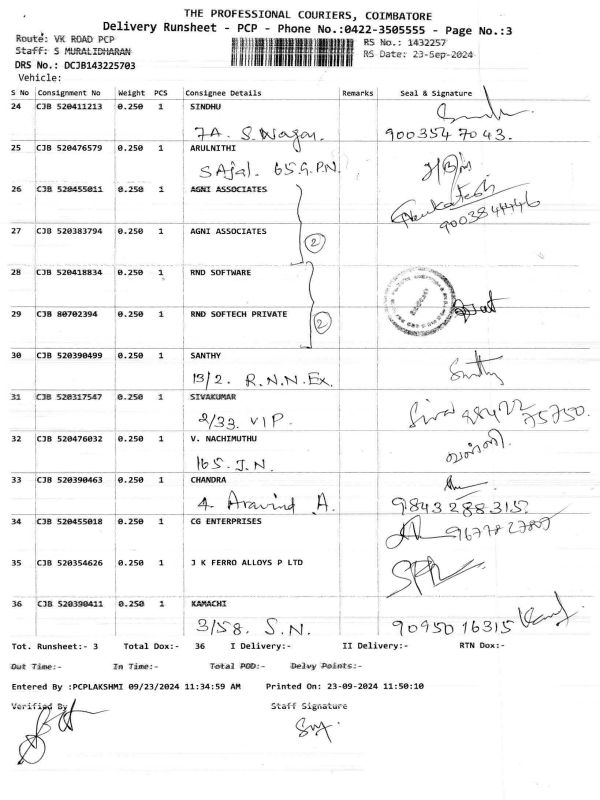 THE PROFESSIONAL COURIERS, COIMBATORE
Delivery Runsheet - PCP - Phone No.:0422-3505555 - Page No.:3
Route: VK ROAD PCP
RS No.: 1432257
Staff: S MURALIDHARAN
RS Date: 23-Sep-2024
DRS No.: DCJB143225703
Vehicle:
S No Consignment No Weight PCS Consignee Details Remarks Seal & Signature
24 CJB 520411213 0.250 1 SINDHU
7A. S. Nagar. 9003547043.
25 CJB 520476579 0.250 1 ARULNITHI
SAjal. 65.G.P.N.
26 CJB 520455011 0.250 1 AGNI ASSOCIATES
Venkatesh
9003844446
27 CJB 520383794 0.250 1 AGNI ASSOCIATES
2
28 CJB 520418834 0.250 1 RND SOFTWARE
29 CJB 80702394 0.250 1 RND SOFTECH PRIVATE
2
30 CJB 520390499 0.250 1 SANTHY
13/2. R.N.N.Ex. Santhy
31 CJB 520317547 0.250 1 SIVAKUMAR
2/33. VIP. Siva 98422 75750.
32 CJB 520476032 0.250 1 V. NACHIMUTHU
165. J.N.
33 CJB 520390463 0.250 1 CHANDRA
4. Aravind A. 9843288315.
34 CJB 520455018 0.250 1 CG ENTERPRISES
35 CJB 520354626 0.250 1 J K FERRO ALLOYS P LTD
36 CJB 520390411 0.250 1 KAMACHI
3/58. S.N. 9095016315
Tot. Runsheet:- 3 Total Dox:- 36 I Delivery:- II Delivery:- RTN Dox:-
Out Time:- In Time:- Total POD:- Delvy Points:-
Entered By :PCPLAKSHMI 09/23/2024 11:34:59 AM Printed On: 23-09-2024 11:50:10
Verified By Staff Signature